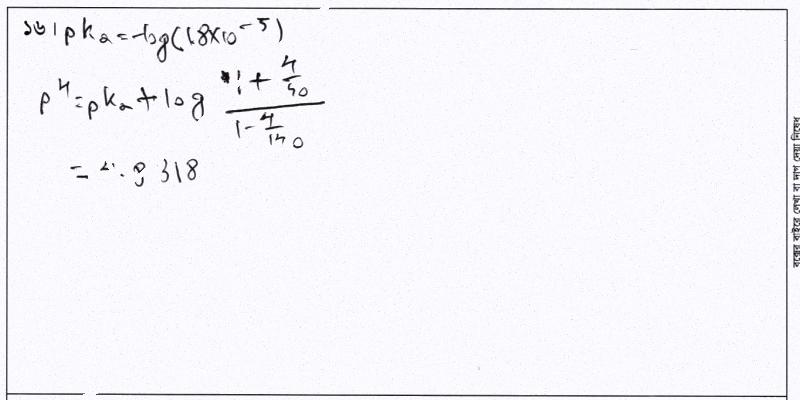 ১৬। pka = -log(1.8×10^-5)
pH = pka + log (1 + 4/40) / (1 - 4/40)
= 4.8318
বক্সের বাইরে লেখা বা দাগ দেয়া নিষেধ